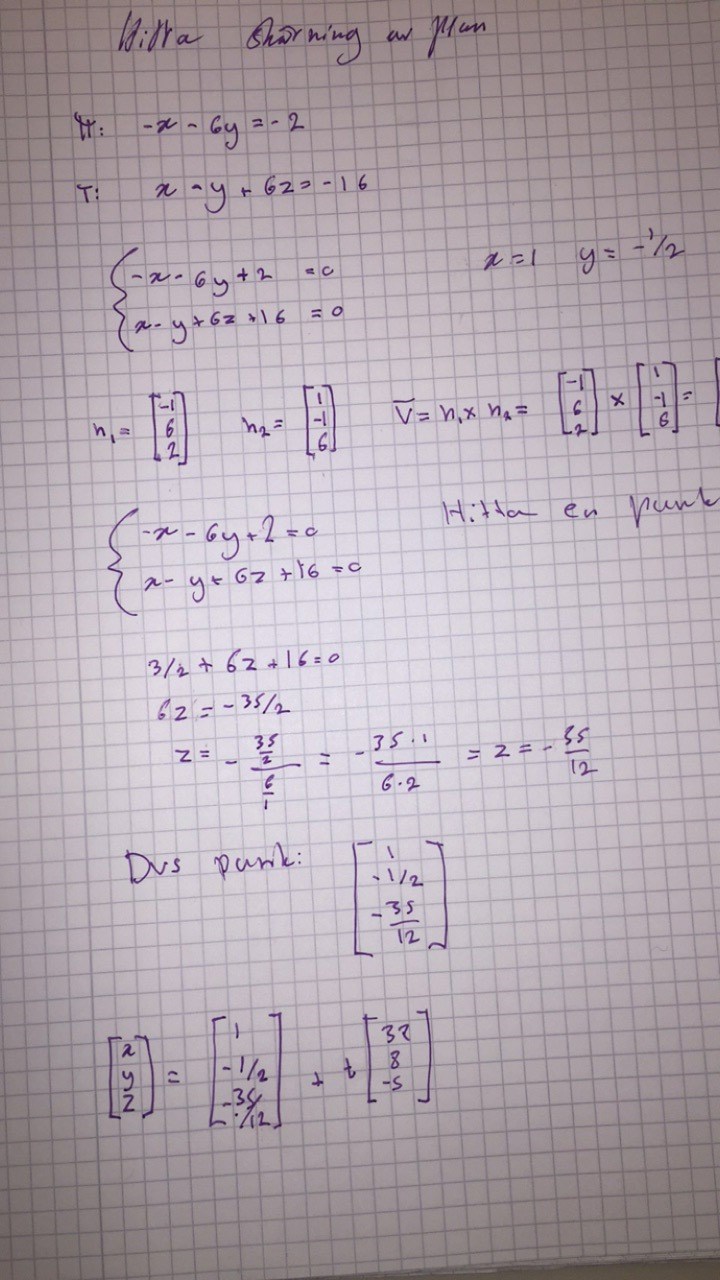 Hitta skärning av plan
π: -x - 6y = -2
T: x - y + 6z = -16
{ -x - 6y + 2 = 0
x - y + 6z + 16 = 0
x = 1 y = -1/2
n₁ = [-1 6 2] n₂ = [1 -1 6] V̅ = n₁ × n₂ = [-1 6 2] × [1 -1 6] = [
{ -x - 6y + 2 = 0
x - y + 6z + 16 = 0
Hitta en punk
3/2 + 6z + 16 = 0
6z = -35/2
z = - (35/2)/(6/1) = - (35·1)/(6·2) = z = - 35/12
Dvs punk: [1 -1/2 -35/12]
[x y z] = [1 -1/2 -35/12] + t [32 8 -5]